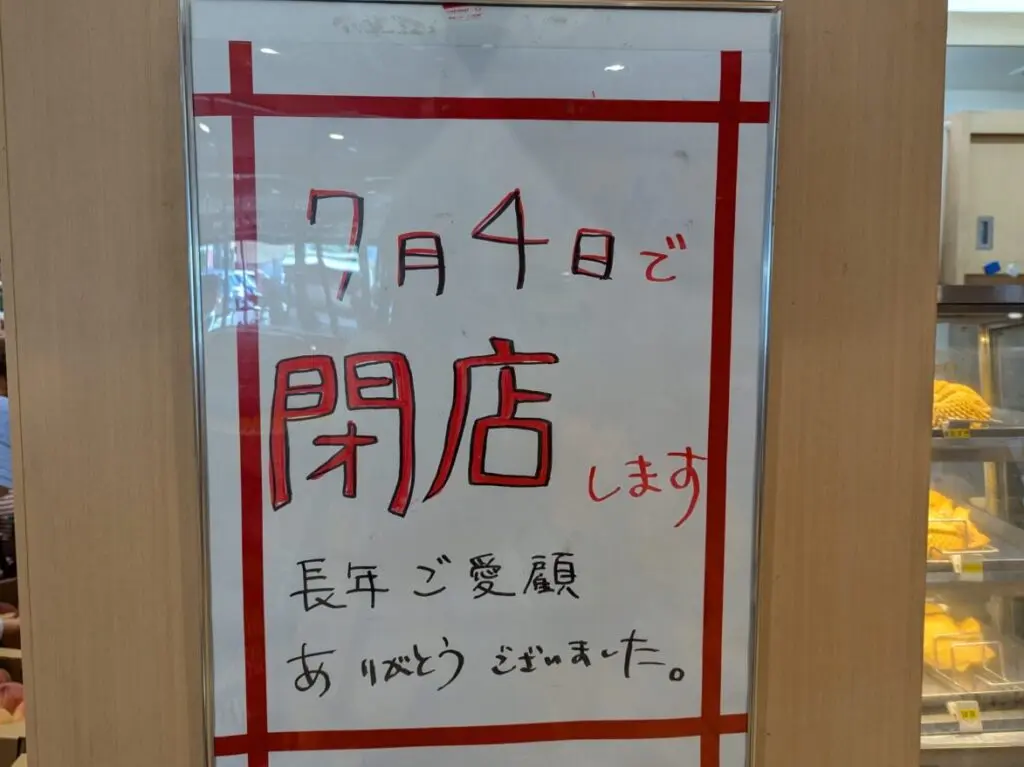 7月4日で
閉店します
長年ご愛顧
ありがとうございました。